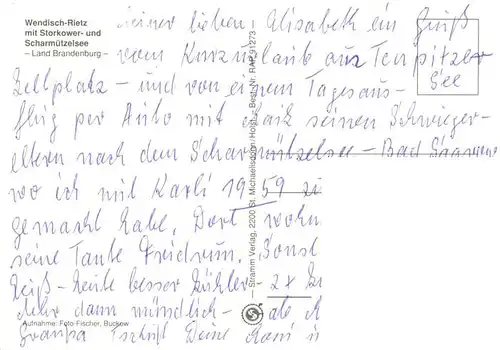 Wendisch-Rietz
mit Storkower- und
Scharmützelsee
– Land Brandenburg –
meiner lieben Elisabeth ein Gruß
vom Kurzurlaub aus Teupitzer
See
Zeltplatz – und von einem Tagesaus-
flug per Auto mit seinen Schwieger-
eltern nach dem Scharmützelsee – Bad Saarow
wo ich mit Karli 1959
gemacht habe. Dort wohn
seine Tante Fridrun. Sonst
heiß – heute besser kühler – 2 x
Mehr dann mündlich –
Grandpa Tschüß Deine
Aufnahme: Foto-Fischer, Buckow
Stramm Verlag, 2200 St. Michaelisdonn/Holst. – Best.-Nr. RAP 91273